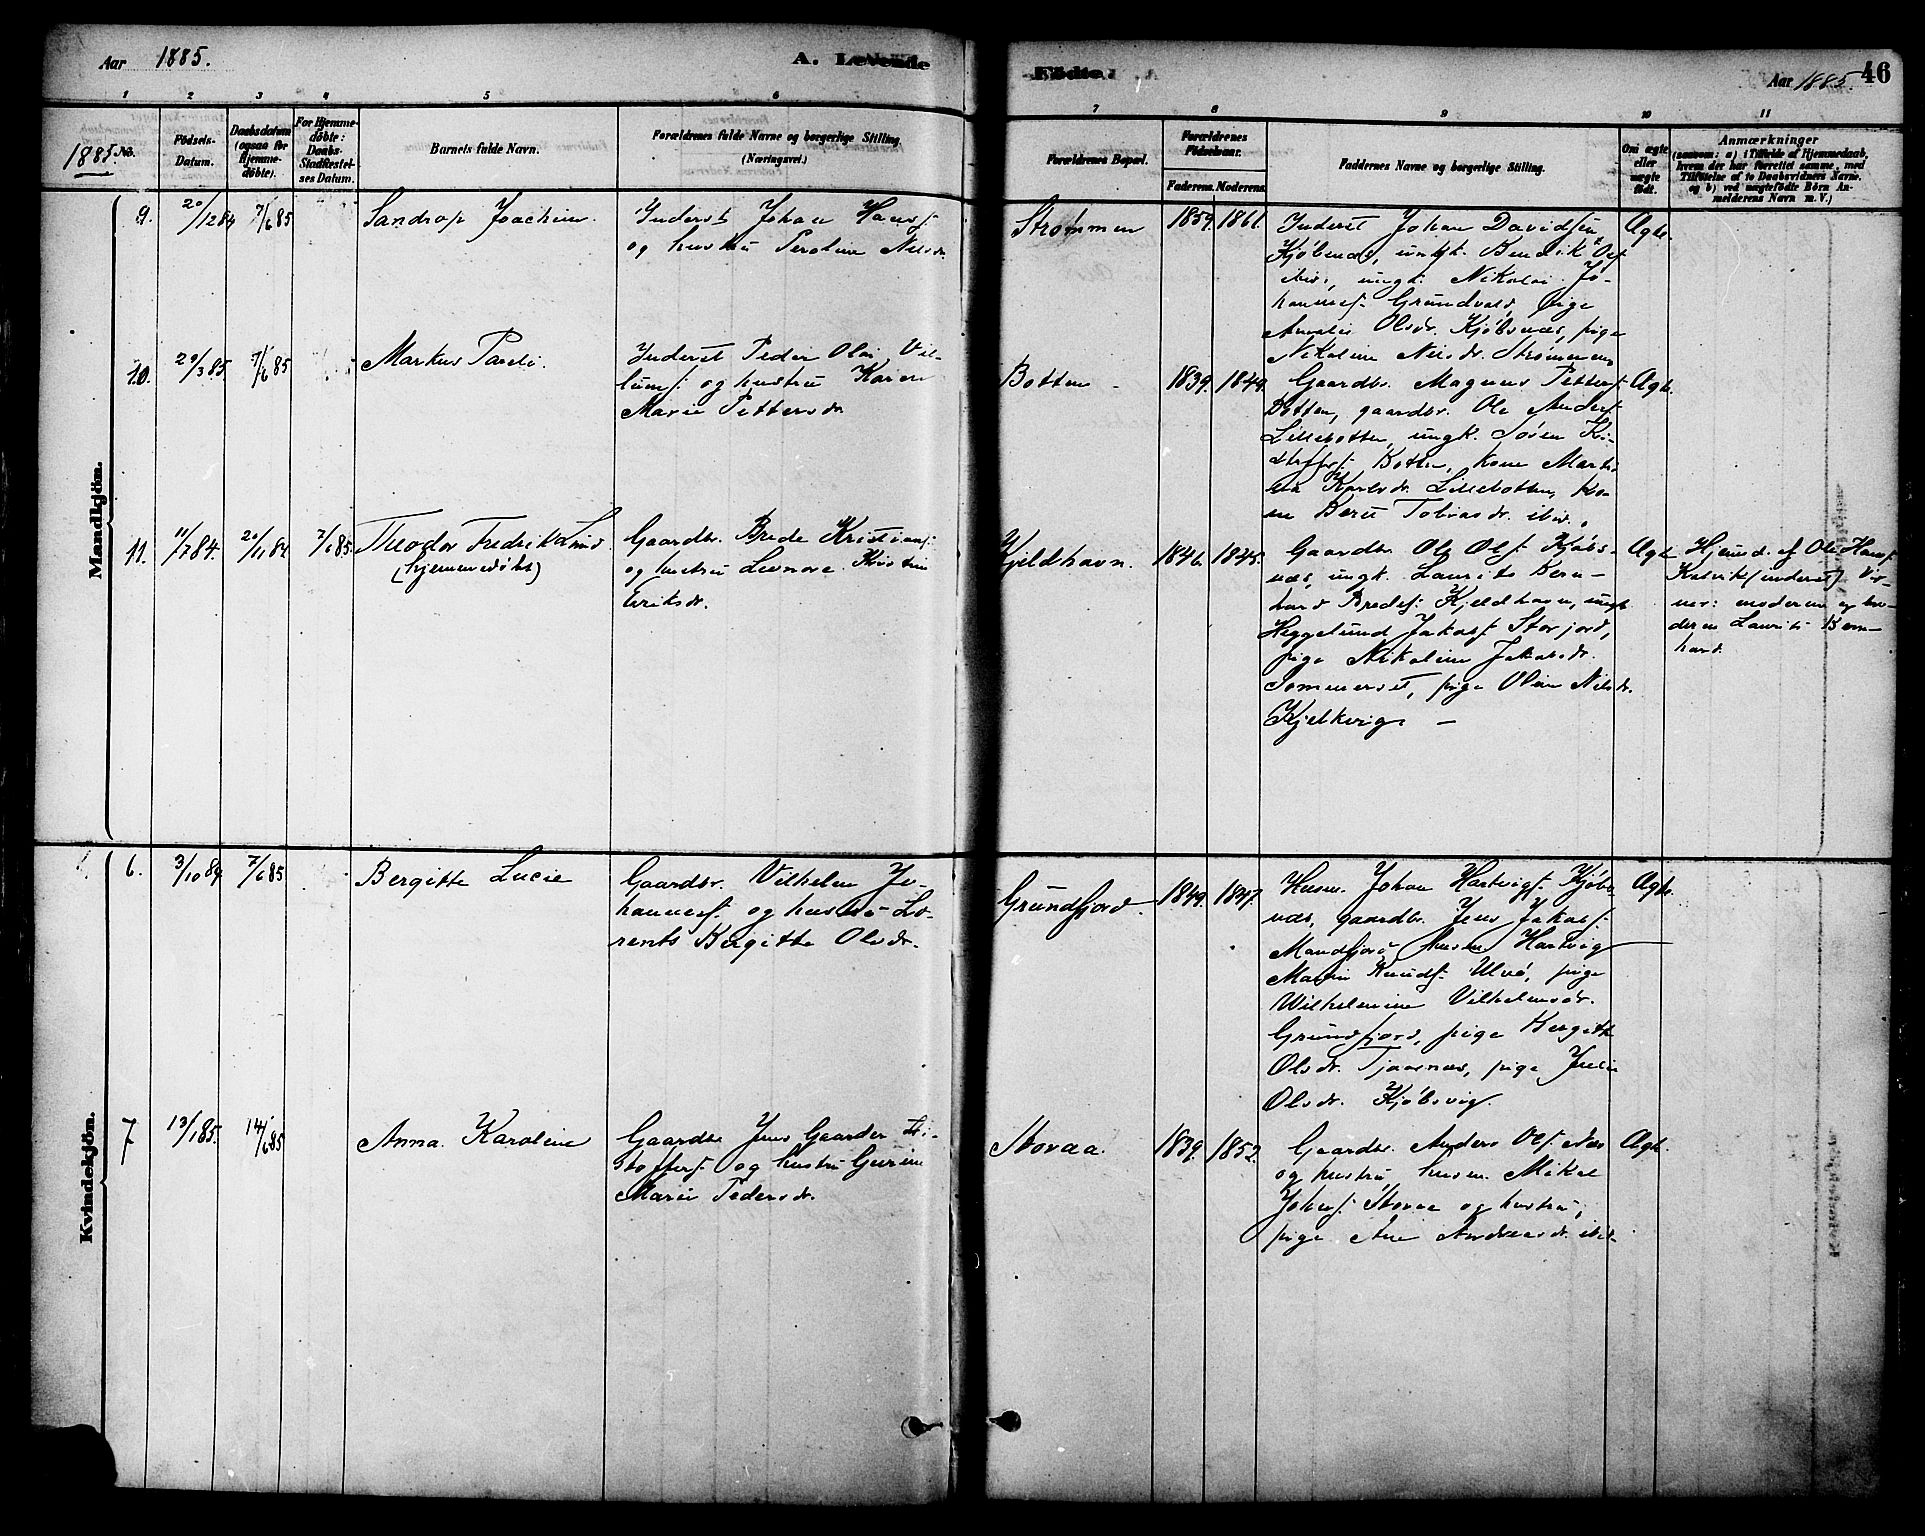 Aar 1885.
A. Levende
Födte.
Aar 1885. 46
1 2 3 4 5 6 7 8 9 10 11
1885 No.
Födsels-
Datum.
Daabsdatum
(ogsaa for
Hjemme-
döbte).
For Hjemme-
döbte:
Daabs-
Stadfæstel-
ses Datum.
Barnets fulde Navn.
Forældrenes fulde Navne og borgerlige Stilling.
(Næringsvei.)
Forældrenes Bopæl.
Forældrenes
Födselsaar.
Faderens. Moderens.
Faddernes Navne og borgerlige Stilling.
Om ægte
eller
uægte
födt.
Anmærkninger
(saasom: a) i Tilfælde af Hjemmedaab,
hvem der har forrettet samme, med
Tilföielse af to Daabsvidners Navne.
og b) ved uægtefödte Börn An-
melderens Navn m. V.)
Mandkjön.
9. 20/12 84 7/6 85 Sandrap Joachim. Inderst Johan Hansf.
og hustru Peroline Nilsdr.
Strømmen 1859. 1861. Inderst Johan Davidsen
Kjöbnæs, ungk. Bendik Olsf.
ibid., ungk. Nikolai Jo-
hannesf. Grundvold, pige
Amalie Olsdr. Kjöbsnæs, pige
Nikoline Nilsdr. Strømmen
Ægte.
10. 29/3 85 7/6 85 Markus Pareli. Inderst Peder Olai Vil-
lumsf. og hustru Karen
Marie Pettersdr.
Botten 1839. 1849. Gaardbr. Magnus Pettersf.
Botten, gaardbr. Ole Andersf.
Lillebotten, ungk. Sören Kri-
stoffersf. Botten, kone Marti-
na Karlsdr. Lillebotten, ko-
ne Berit Tobiasdr. ibid.
Ægte.
11. 11/7 84. 20/11 84 7/6 85 Theodor Fredrik Lind
(hjemmedöbt)
Gaardbr. Brede Kristiansf.
og hustru Leonore Kirstine
Eriksdr.
Kjeldhavn. 1846. 1845. Gaardbr. Ole Olsf. Kjöbs-
næs, ungk. Laurits Bern-
hard Bredesf. Kjeldhavn, ungk.
Heggelund Jakobsf. Storjord,
pige Nikoline Jakobsdr.
Sommerset, pige Oline Nilsdr.
Kjelkvig. —
Ægte Hjemmed. af Ole Hansf.
Kalvik (inderst). Vid-
ner: moderen og bro-
deren Laurits Bern-
hard.
Kvindekjön.
6. 3/10 84 7/6 85 Bergitte Lucie Gaardbr. Vilhelm Jo-
hannesf. og hustru Lo-
rents Bergitte Olsdr.
Grundfjord. 1849. 1847. Husm. Johan Hartvigsf. Kjöbs-
næs, gaardbr. Jens Jakobsf.
Mandfjord, husm. Hartvig
Martin Knudsf. Ulvö, pige
Wilhelmine Vilhelmsdr.
Grundfjord, pige Bergitte
Olsdr. Tjaarnæs, pige Julie
Olsdr. Kjöbsvig.
Ægte.
7 13/1 85. 14/6 85 Anna Karoline Gaardbr. Jens Gaarder Kri-
stoffersf. og hustru Gurine
Marie Pedersdr.
Storaa. 1839. 1852. Gaardbr. Anders Olsf. Næs
og hustru, husm. Mikal
Johnsf. Storaa og hustru,
pige Ane Andreasdr. ibid.
Ægte.